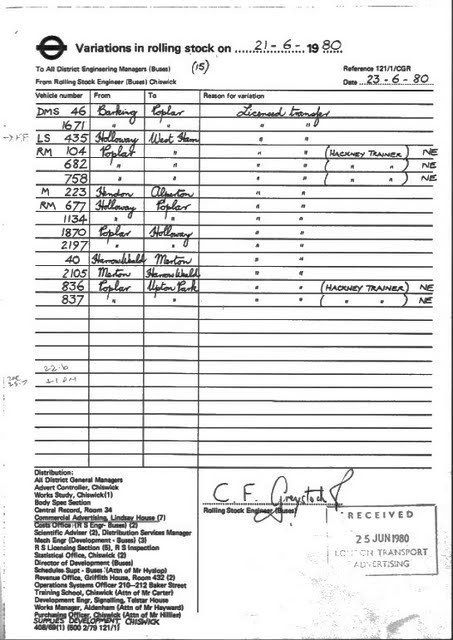 Variations in rolling stock on 21-6-1980
To All District Engineering Managers (Buses) (15) Reference 121/1/CGR
From Rolling Stock Engineer (Buses) Chiswick Date 23-6-80
Vehicle number From To Reason for variation
DMS 46 Barking Poplar Licensed transfer
1671 " " " "
LS 435 Holloway West Ham " "
RM 104 Poplar " " " (HACKNEY TRAINER) NE
682 " " " " ( " " ) NE
758 " " " " ( " " ) NE
M 223 Hendon Alperton " "
RM 677 Holloway Poplar " "
1134 " " " "
1870 Poplar Holloway " "
2197 " " " "
40 Harrow Weald Merton " "
2105 Merton Harrow Weald " "
836 Poplar Upton Park " " (HACKNEY TRAINER) NE
837 " " " " ( " " ) NE
22.6
Distribution:
All District General Managers
Advert Controller, Chiswick
Works Study, Chiswick(1)
Body Spec Section
Central Record, Room 34
Commercial Advertising, Lindsay House (7)
Costs Office (R S Engr- Buses) (2)
Scientific Adviser (2), Distribution Services Manager
Mech Engr (Development - Buses) (3)
R S Licensing Section (5), R S Inspection
Statistical Office, Chiswick (2)
Director of Development (Buses)
Schedules Supt - Buses (Attn of Mr Hyslop)
Revenue Office, Griffith House, Room 432 (2)
Operations Systems Officer 210-212 Baker Street
Training School, Chiswick (Attn of Mr Carter)
Development Engr, Signalling, Telstar House
Works Manager, Aldenham (Attn of Mr Hayward)
Purchasing Officer, Chiswick (Attn of Mr Hillier)
SUPPLIES DEVELOPMENT, CHISWICK
408/69(1) (500 2/79 121/1)
C. F. Greystock
Rolling Stock Engineer (Buses)
RECEIVED
25 JUN 1980
LONDON TRANSPORT
ADVERTISING